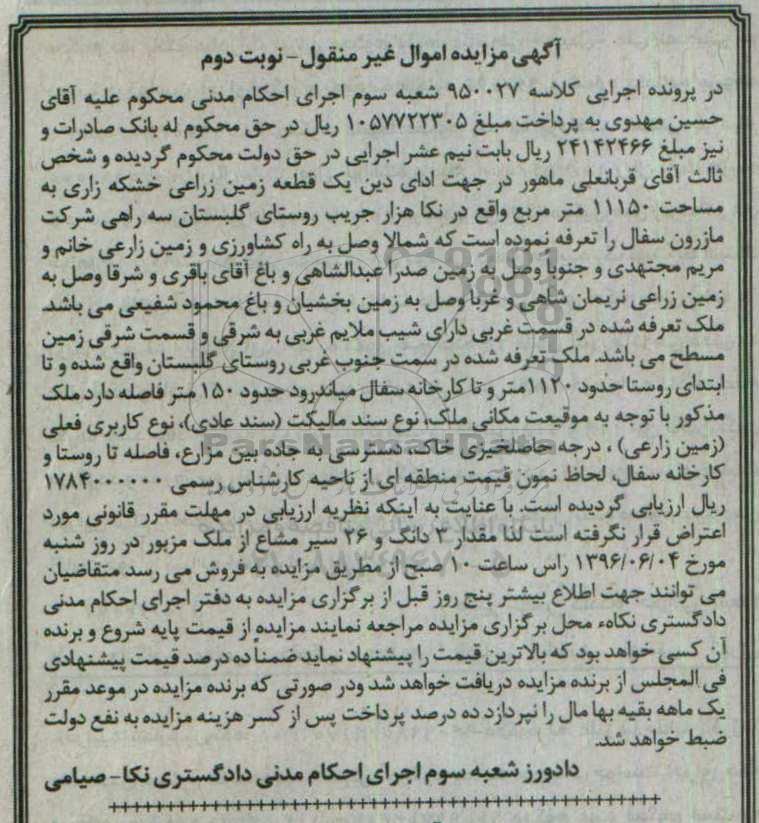 آگهی مزایده اموال غیر منقول- نوبت دوم
در پرونده اجرایی کلاسه ۹۵۰۰۲۷ شعبه سوم اجرای احکام مدنی محکوم علیه آقای
حسین مهدوی به پرداخت مبلغ ۱۰۵۷۷۲۲۳۰۵ ریال در حق محکوم له بانک صادرات و
نیز مبلغ ۲۴۱۴۲۴۶۶ ریال بابت نیم عشر اجرایی در حق دولت محکوم گردیده و شخص
ثالث آقای قربانعلی ماهور در جهت ادای دین یک قطعه زمین زراعی خشکه زاری به
مساحت ۱۱۱۵۰ متر مربع واقع در نکا هزار جریب روستای گلبستان سه راهی شرکت
مازرون سفال را تعرفه نموده است که شمالا وصل به راه کشاورزی و زمین زارعی خانم و
مریم مجتهدی و جنوبا وصل به زمین صدرا عبدالشاهی و باغ آقای باقری و شرقا وصل به
زمین زراعی نریمان شاهی و غربا وصل به زمین بخشیان و باغ محمود شفیعی می باشد.
ملک تعرفه شده در قسمت غربی دارای شیب ملایم غربی به شرقی و قسمت شرقی زمین
مسطح می باشد. ملک تعرفه شده در سمت جنوب غربی روستای گلبستان واقع شده و تا
ابتدای روستا حدود ۱۱۲۰متر و تا کارخانه سفال میاندرود حدود ۱۵۰ متر فاصله دارد ملک
مذکور با توجه به موقیعت مکانی ملک، نوع سند مالیکت (سند عادی)، نوع کاربری فعلی
(زمین زارعی) ، درجه حاصلخیزی خاک، دسترسی به جاده بین مزارع، فاصله تا روستا و
کارخانه سفال، لحاظ نمون قیمت منطقه ای از ناحیه کارشناس رسمی ۱۷۸۴۰۰۰۰۰۰
ریال ارزیابی گردیده است. با عنایت به اینکه نظریه ارزیابی در مهلت مقرر قانونی مورد
اعتراض قرار نگرفته است لذا مقدار ۳ دانگ و ۲۶ سیر مشاع از ملک مزبور در روز شنبه
مورخ ۱۳۹۶/۰۶/۰۴ راس ساعت ۱۰ صبح از مطریق مزایده به فروش می رسد متقاضیان
می توانند جهت اطلاع بیشتر پنج روز قبل از برگزاری مزایده به دفتر اجرای احکام مدنی
دادگستری نکاء محل برگزاری مزایده مراجعه نمایند مزایده از قیمت پایه شروع و برنده
آن کسی خواهد بود که بالاترین قیمت را پیشنهاد نماید ضمناً ده درصد قیمت پیشنهادی
فی المجلس از برنده مزایده دریافت خواهد شد ودر صورتی که برنده مزایده در موعد مقرر
یک ماهه بقیه بها مال را نپردازد ده درصد پرداخت پس از کسر هزینه مزایده به نفع دولت
ضبط خواهد شد.
دادورز شعبه سوم اجرای احکام مدنی دادگستری نکا- صیامی
ParsNamadData